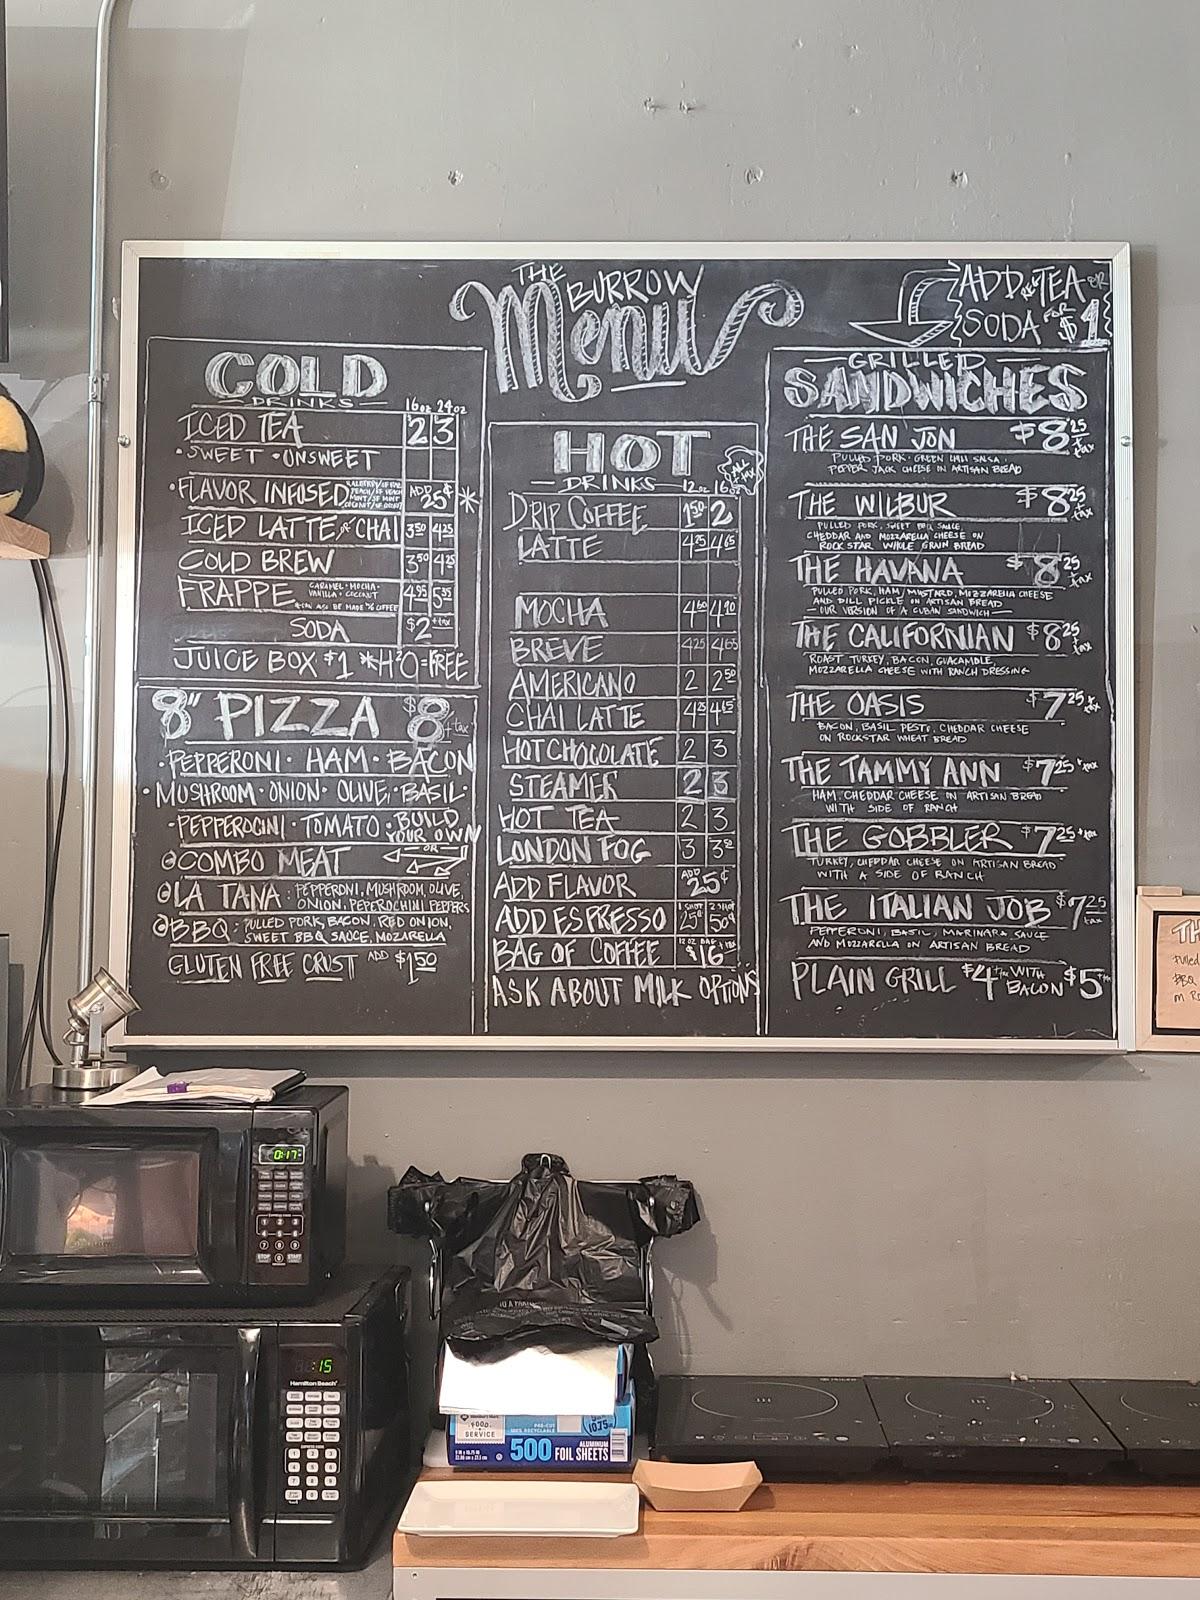 THE BURROW
Menu
ADD REG TEA OR
SODA FOR $1
COLD
DRINKS
16oz 24oz
ICED TEA 2 3
• SWEET • UNSWEET
• FLAVOR INFUSED ADD 25¢ *
ICED LATTE or CHAI 3.50 4.25
COLD BREW 3.50 4.25
FRAPPE CARAMEL • MOCHA • VANILLA • COCONUT 4.95 5.35
*CAN ALSO BE MADE W/O COFFEE
SODA $2 + tax
JUICE BOX $1 *H2O=FREE
8" PIZZA $8 + tax
• PEPPERONI • HAM • BACON
• MUSHROOM • ONION • OLIVE • BASIL •
• PEPPEROCINI • TOMATO • BUILD YOUR OWN
OR
COMBO MEAT
LA TANA: PEPPERONI, MUSHROOM, OLIVE,
ONION, PEPEROCHINI PEPPERS
BBQ: PULLED PORK, BACON, RED ONION,
SWEET BBQ SAUCE, MOZARELLA
GLUTEN FREE CRUST ADD $1.50
HOT
DRINKS
ALL + tax
12oz 16oz
DRIP COFFEE 1.50 2
LATTE 4.25 4.65
MOCHA 4.60 4.90
BREVE 4.25 4.65
AMERICANO 2 2.50
CHAI LATTE 4.25 4.65
HOT CHOCOLATE 2 3
STEAMER 2 3
HOT TEA 2 3
LONDON FOG 3 3.50
ADD FLAVOR ADD 25¢
ADD ESPRESSO 1 SHOT 25¢ 2 SHOT 50¢
BAG OF COFFEE 12 OZ BAG $16 + tax
ASK ABOUT MILK OPTIONS
GRILLED
SANDWICHES
THE SAN JON $8.25 + tax
PULLED PORK • GREEN CHILI SALSA •
PEPPER JACK CHEESE IN ARTISAN BREAD
THE WILBUR $8.25 + tax
PULLED PORK, SWEET BBQ SAUCE,
CHEDDAR AND MOZZARELLA CHEESE ON
ROCK STAR WHOLE GRAIN BREAD
THE HAVANA $8.25 + tax
PULLED PORK, HAM, MUSTARD, MOZZARELLA CHEESE
AND DILL PICKLE ON ARTISAN BREAD
— OUR VERSION OF A CUBAN SANDWICH —
THE CALIFORNIAN $8.25 + tax
ROAST TURKEY, BACON, GUACAMOLE,
MOZZARELLA CHEESE WITH RANCH DRESSING
THE OASIS $7.25 + tax
BACON, BASIL PESTO, CHEDDAR CHEESE
ON ROCKSTAR WHEAT BREAD
THE TAMMY ANN $7.25 + tax
HAM, CHEDDAR CHEESE ON ARTISAN BREAD
WITH SIDE OF RANCH
THE GOBBLER $7.25 + tax
TURKEY, CHEDDAR CHEESE ON ARTISAN BREAD
WITH A SIDE OF RANCH
THE ITALIAN JOB $7.25 tax
PEPPERONI, BASIL, MARINARA SAUCE
AND MOZZARELLA ON ARTISAN BREAD
PLAIN GRILL $4 + tax WITH BACON $5 + tax
TH
Pulled
BBQ
0:17
:15
Hamilton Beach
FOOD
SERVICE
500 ALUMINUM
FOIL SHEETS
10.75